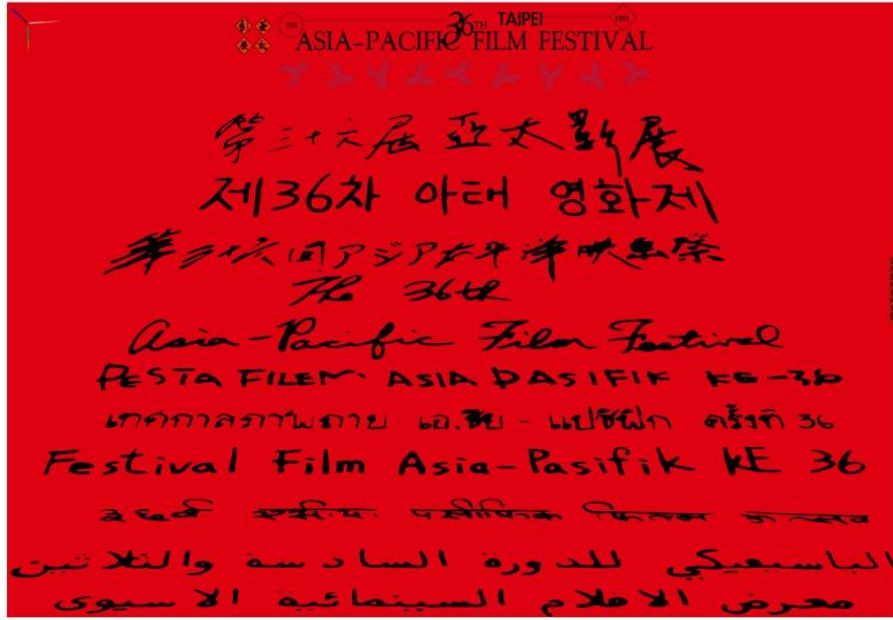 影亞展太
1991
36TH TAIPEI
ASIA-PACIFIC FILM FESTIVAL
第三十六屆 亞太影展
제36차 아태 영화제
第三十六回アジア太平洋映画祭
The 36th
Asia-Pacific Film Festival
PESTA FILEM ASIA PASIFIK KE-36
เทศกาลภาพถาย เอ.ซีย - แปซิฟิก ครั้งที่ 36
Festival Film Asia-Pasifik KE 36
الباسيفيكي للدورة السادسة والثلاثين
معرض الافلام السينمائية الاسيوى